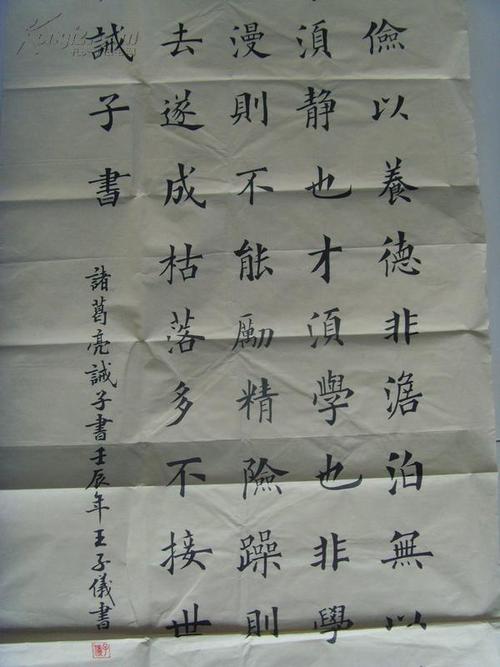 儉以養德非澹泊無以
湏靜也才湏學也非學
漫則不能勵精險躁則
去遂成枯落多不接世
誡子書
諸葛亮誡子書壬辰年王子儀書